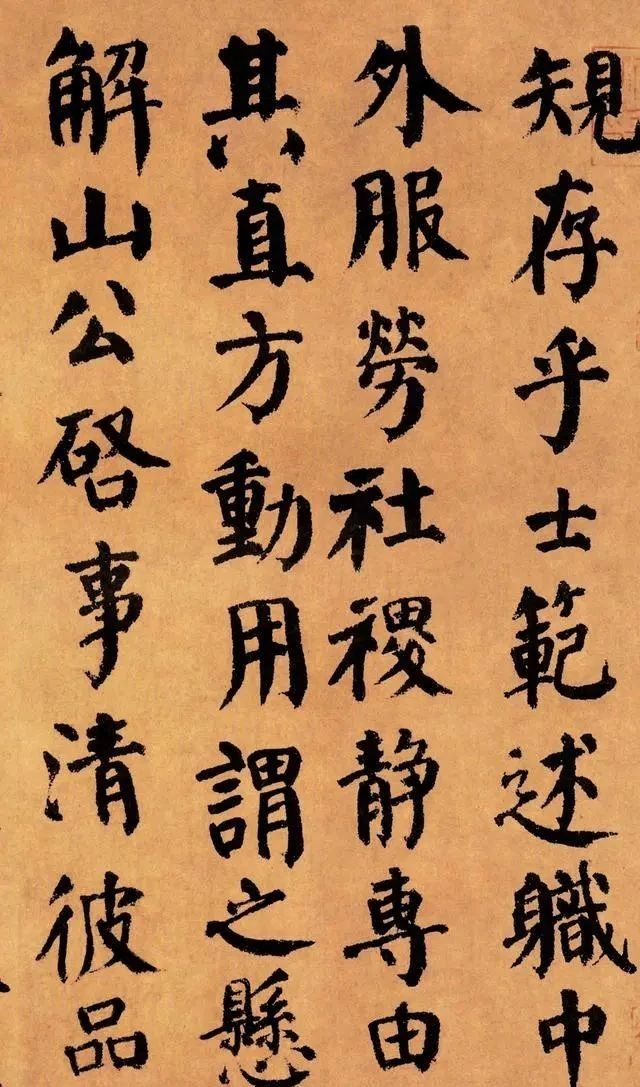 規存乎士範述職中
外服勞社稷静專由
其直方動用謂之懸
解山公啓事清彼品